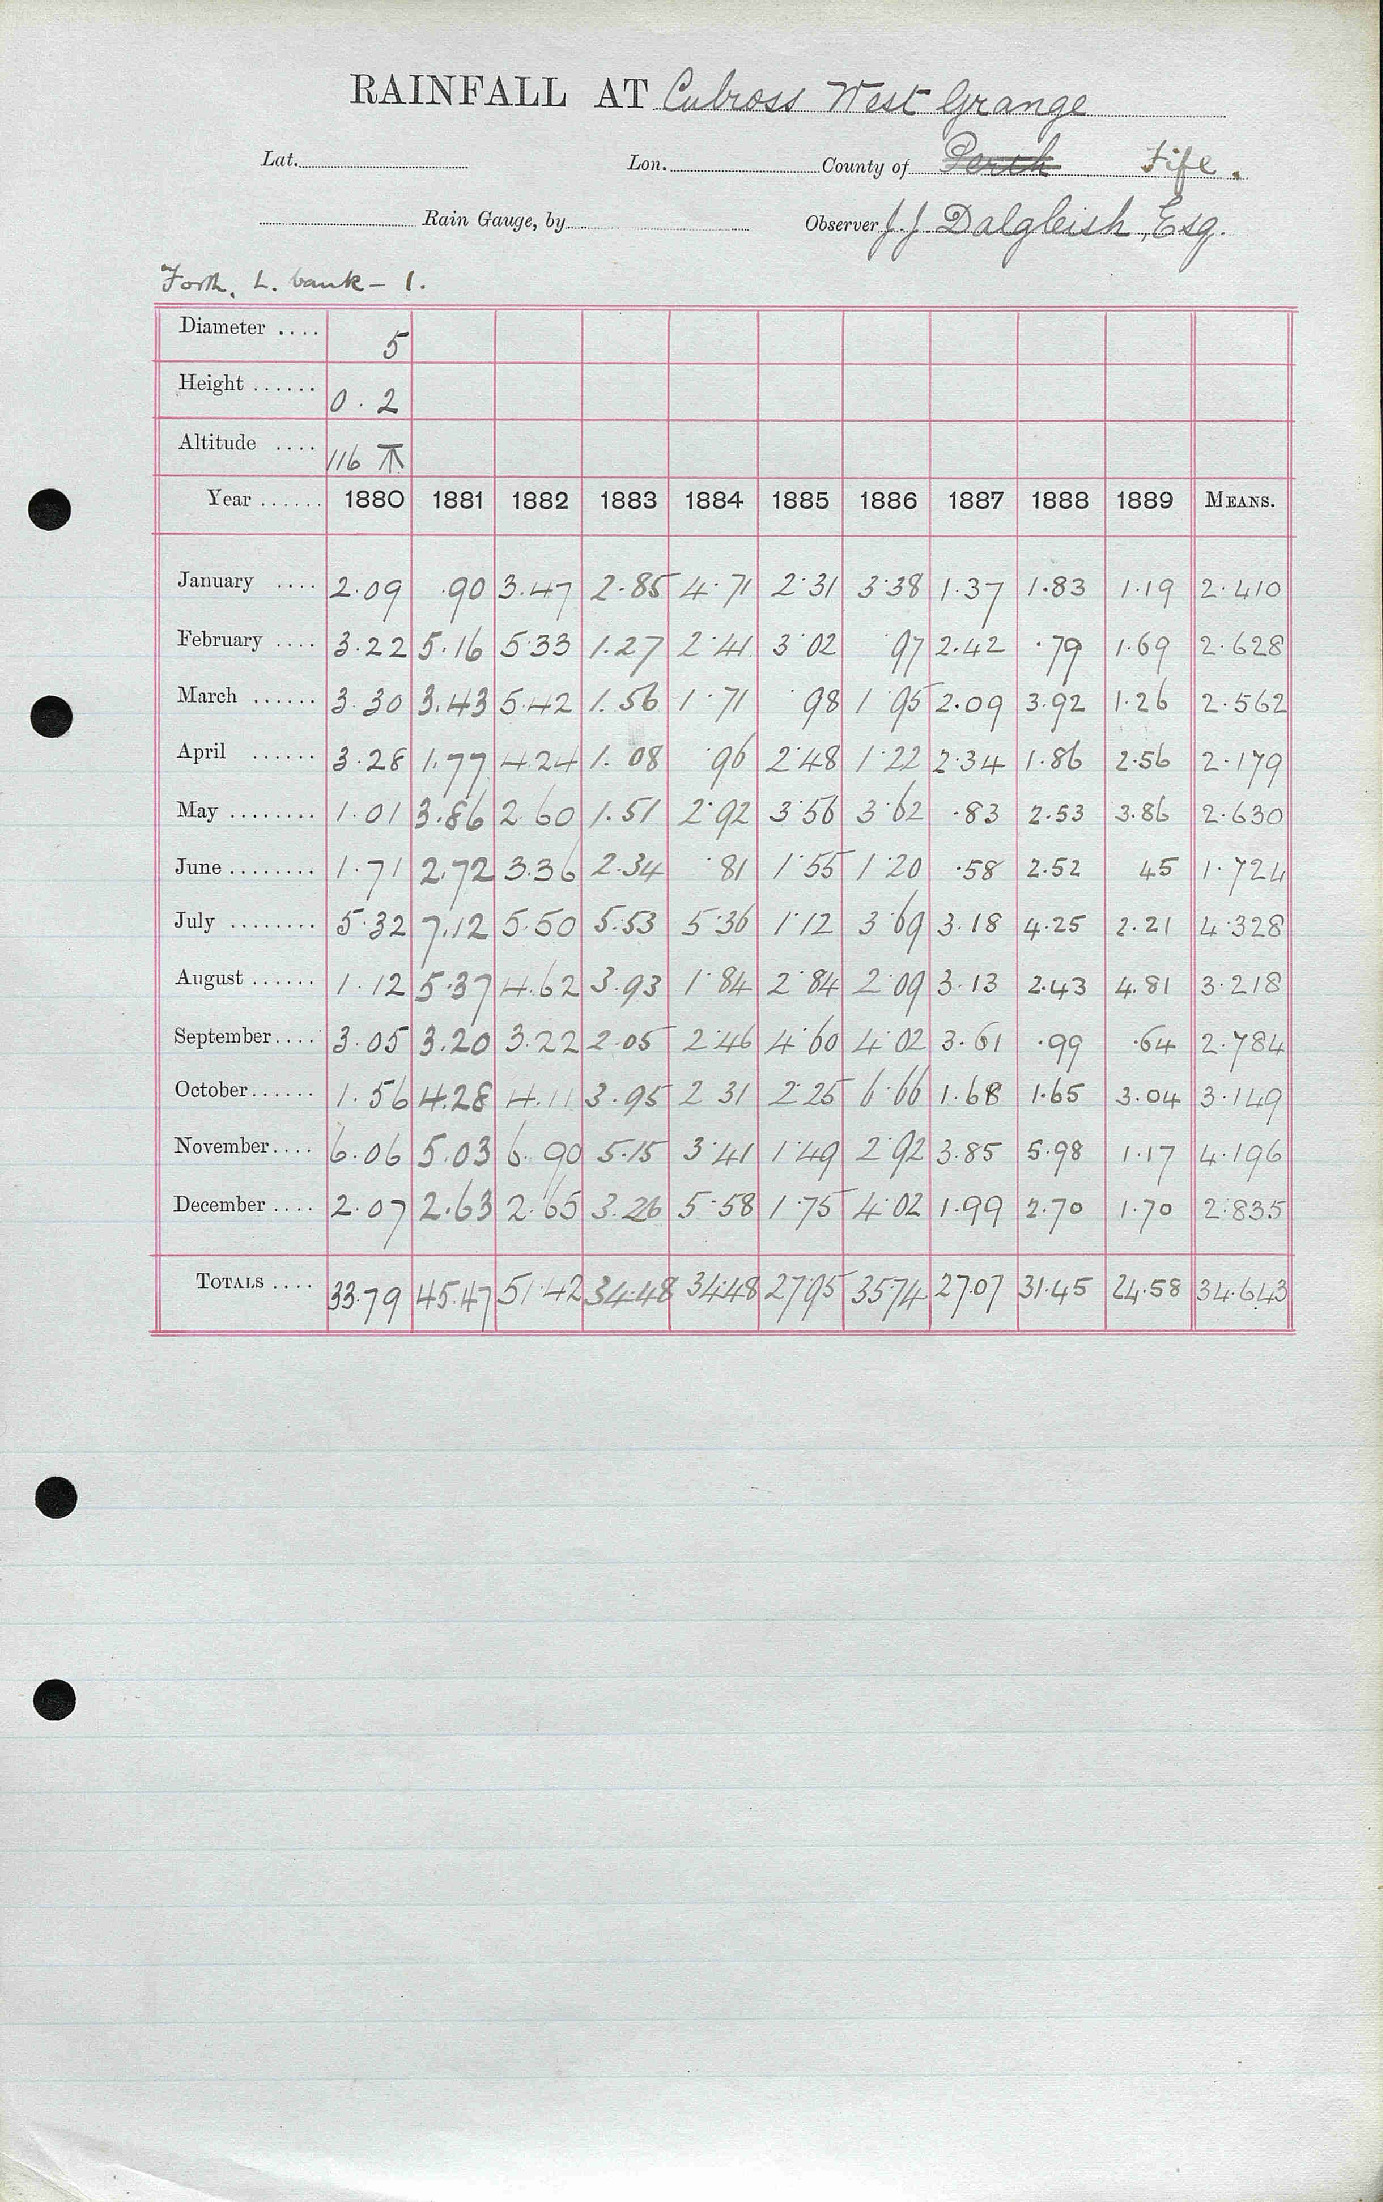 RAINFALL AT Culross West Grange
Lat. Lon. County of Perth Fife.
Rain Gauge, by Observer J. J. Dalgleish, Esq.
Forth, L. bank - 1.
Diameter .... 5
Height ...... 0.2
Altitude .... 116
Year ...... 1880 1881 1882 1883 1884 1885 1886 1887 1888 1889 MEANS.
January .... 2.09 .90 3.47 2.85 4.71 2.31 3.38 1.37 1.83 1.19 2.410
February .... 3.22 5.16 5.33 1.27 2.41 3.02 97 2.42 .79 1.69 2.628
March ...... 3.30 3.43 5.42 1.56 1.71 98 1.95 2.09 3.92 1.26 2.562
April ...... 3.28 1.77 4.24 1.08 .96 2.48 1.22 2.34 1.86 2.56 2.179
May ........ 1.01 3.86 2.60 1.51 2.92 3.56 3.62 .83 2.53 3.86 2.630
June ........ 1.71 2.72 3.36 2.34 .81 1.55 1.20 .58 2.52 45 1.724
July ........ 5.32 7.12 5.50 5.53 5.36 1.12 3.69 3.18 4.25 2.21 4.328
August ...... 1.12 5.37 4.62 3.93 1.84 2.84 2.09 3.13 2.43 4.81 3.218
September.... 3.05 3.20 3.22 2.05 2.46 4.60 4.02 3.61 .99 .64 2.784
October...... 1.56 4.28 4.11 3.95 2.31 2.25 6.66 1.68 1.65 3.04 3.149
November.... 6.06 5.03 6.90 5.15 3.41 1.49 2.92 3.85 5.98 1.17 4.196
December .... 2.07 2.63 2.65 3.26 5.58 1.75 4.02 1.99 2.70 1.70 2.835
TOTALS .... 33.79 45.47 51.42 34.48 34.48 27.95 35.74 27.07 31.45 24.58 34.643